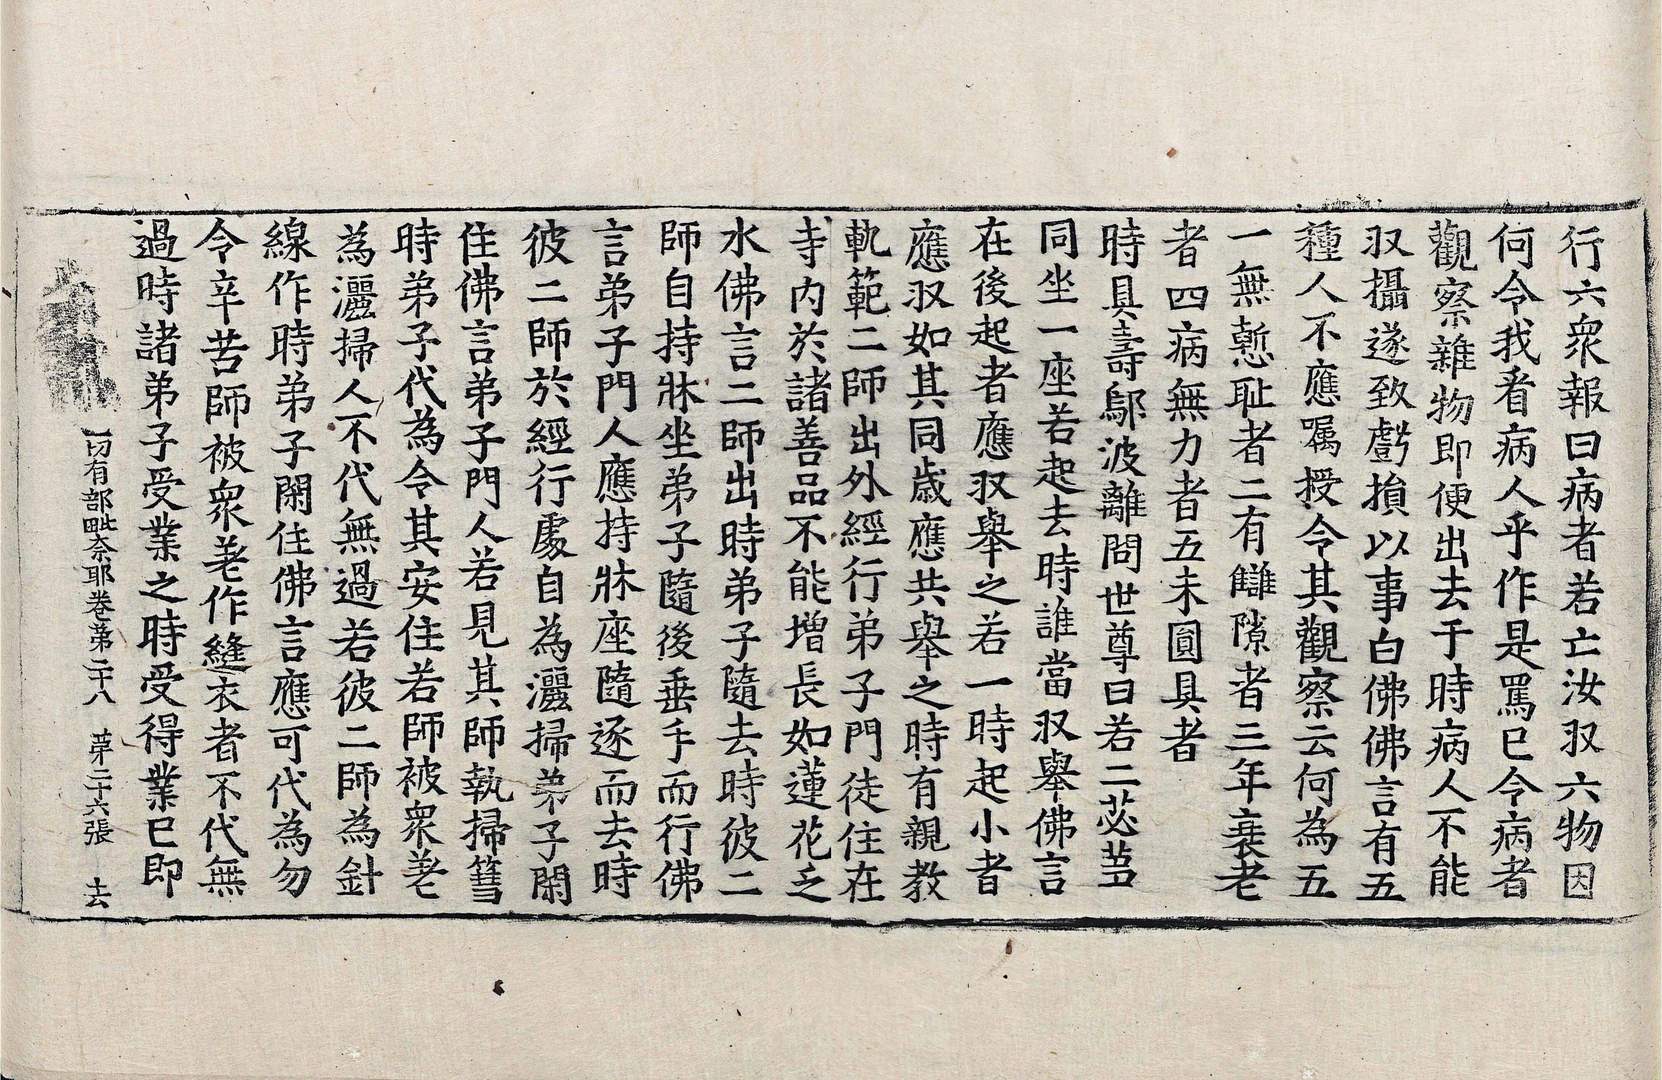 行六衆報曰病者若亡汝収六物因
何令我看病人乎作是罵已令病者
觀察雜物即便出去于時病人不能
収攝遂致虧損以事白佛佛言有五
種人不應囑授令其觀察云何為五
一無慙耻者二有讎隙者三年衰老
者四病無力者五未圓具者
時具壽鄔波離問世尊曰若二苾芻
同坐一座若起去時誰當収舉佛言
在後起者應収舉之若一時起小者
應収如其同歳應共舉之時有親教
軌範二師出外經行弟子門徒住在
寺内於諸善品不能增長如蓮花乏
水佛言二師出時弟子隨去時彼二
師自持牀坐弟子隨後垂手而行佛
言弟子門人應持牀座隨逐而去時
彼二師於經行處自為灑掃弟子閑
住佛言弟子門人若見其師執掃篲
時弟子代為令其安住若師被衆差
為灑掃人不代無過若彼二師為針
線作時弟子閑住佛言應可代為勿
令辛苦師被衆差作縫衣者不代無
過時諸弟子受業之時受得業已即
一切有部毗奈耶卷第二十八　苐二十六張　去